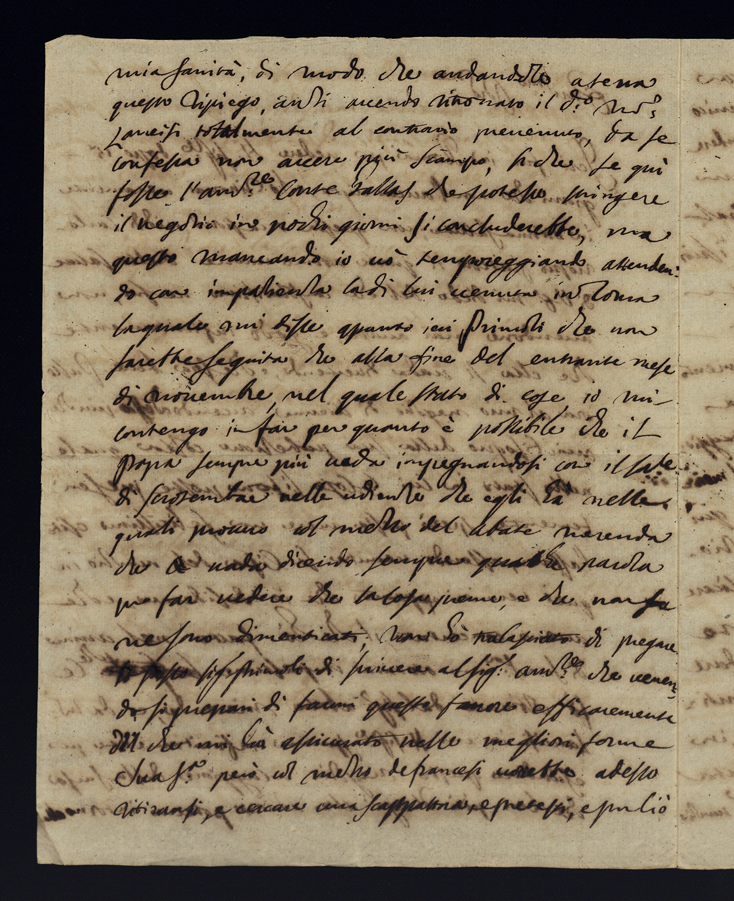 mia sanità, di modo che andandosi a terra
questo ripiego, anzi avendo ritrovato il d.º Mons.
Lancisi totalmente al contrario prevenuto, da se
confessa non avere più scampo, si che se qui
fosse l'amb.re Conte Gallas che potesse stringere
il negozio in pochi giorni si concluderebbe, ma
questo mancando io vò temporeggiando attenden-
do con impatienza la di lui venuta in Roma
la quale mi disse quanto ieri Primoli che non
sarebbe seguita che alla fine del entrante mese
di novembre, nel quale stato di cose io mi
contengo in far per quanto è possibile che il
Papa sempre più veda impegnandosi con il
di nelle udienze che egli dà nelle
quali procuro col mezzo del abate Merenda
che vada dicendo sempre qualche parola
per far vedere che la cosa preme, e che non
ne sono dimenticati, non hò tralasciato di pregare
di scrivere al sig. amb.re che venen-
do si prepari di farmi questo favore efficacemente
che mi hà assicurato nelle megliori forme
Sua S.tà però col mezzo de francesi vorrebbe adesso
ritirarsi, e cercare una scappatoria, e pretesti, e per ciò